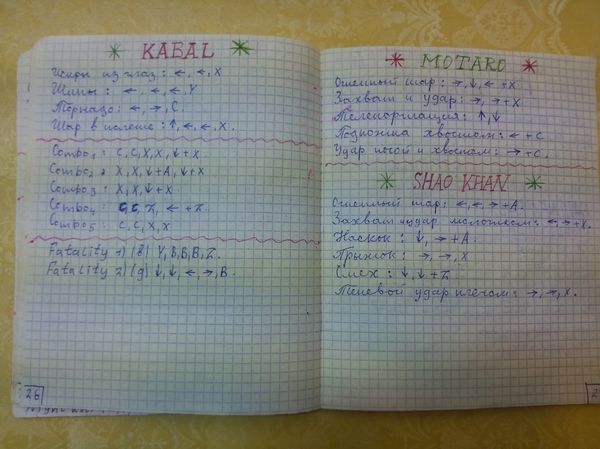 KABAL
Искры из глаз: ←, ←, X
Шипы: ←, ←, ←, Y
Торнадо: ←, →, C.
Шар в полете: ↑, ←, ←, X.
Combo1: C, C, X, X, ↓+X
Combo2: X, X, ↓+A, ↓+X
Combo3: X, X, ↓+X
Combo4: C, C, Z, ←+Z.
Combo5: C, C, X, X
Fatality 1) Y, B, B, B, Z.
Fatality 2) ↓, ↓, ←, →, B.
26
MOTARO
Огненный шар: →, ↓, ←+X
Захват и удар: →, →+X
Телепортация: ↑, ↓
Подножка хвостом: ←+C
Удар ногой и хвостом: →+C.
SHAO KHAN
Огненный шар: ←, ←, →+A.
Захват и удар молотком: ←, →+X.
Наскок: ↓, →+A.
Прыжок: →, →, X
Смех: ↓, ↓+Z
Теневой удар плечом: →, →, X.
2